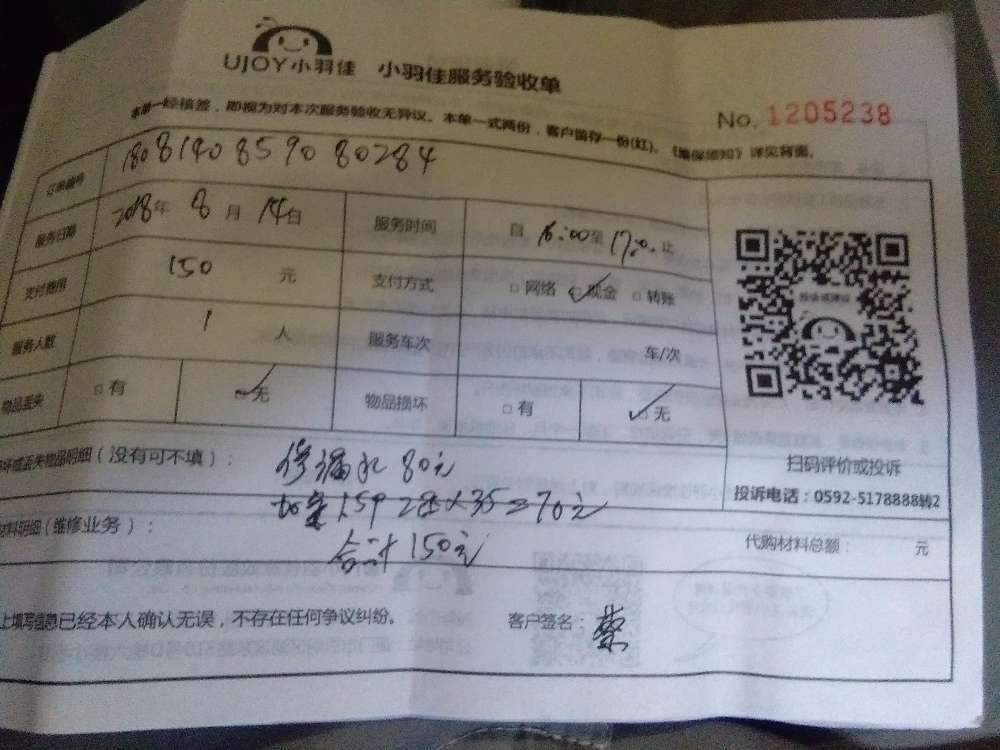 UJOY小羽佳 小羽佳服务验收单
本单一经核签，即视为对本次服务验收无异议。本单一式两份，客户留存一份(红)。《维保须知》详见背面。
No. 1205238
订单编号 180814085908 0284
服务日期 2018年 8月 14日 服务时间 自 16:00至 17:0. 止
支付费用 150 元 支付方式 □网络 ☑现金 □转账
服务人数 1 人 服务车次 车/次
物品丢失 □有 ☑无 物品损坏 □有 ☑无
投诉或建议
扫码评价或投诉
投诉电话：0592-5178888转2
坏或丢失物品明细（没有可不填）： 修漏水 80元
2 X35=70元
材料明细(维修业务)： 合计150元
代购材料总额： 元
上填写信息已经本人确认无误，不存在任何争议纠纷。 客户签名：蔡